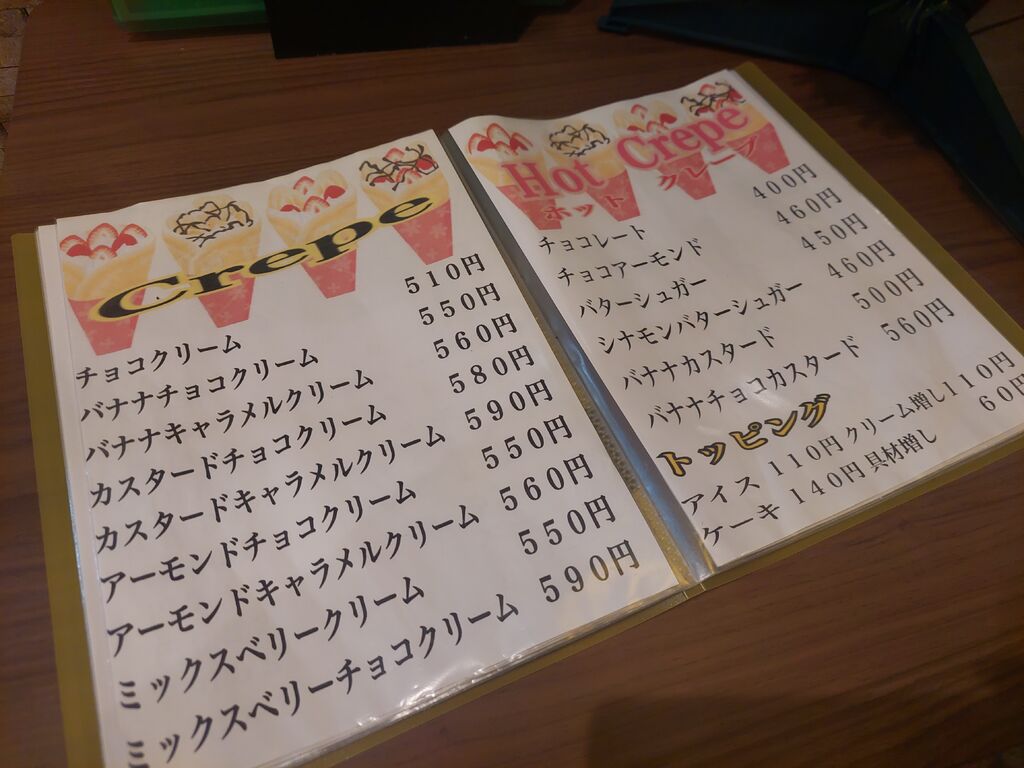 Crepe
チョコクリーム 510円
バナナチョコクリーム 550円
バナナキャラメルクリーム 560円
カスタードチョコクリーム 580円
カスタードキャラメルクリーム 590円
アーモンドチョコクリーム 550円
アーモンドキャラメルクリーム 560円
ミックスベリークリーム 550円
ミックスベリーチョコクリーム 590円
Hot Crepe
ホット クレープ
チョコレート 400円
チョコアーモンド 460円
バターシュガー 450円
シナモンバターシュガー 460円
バナナカスタード 500円
バナナチョコカスタード 560円
トッピング
アイス 110円 クリーム増し110円
ケーキ 140円 具材増し 60円